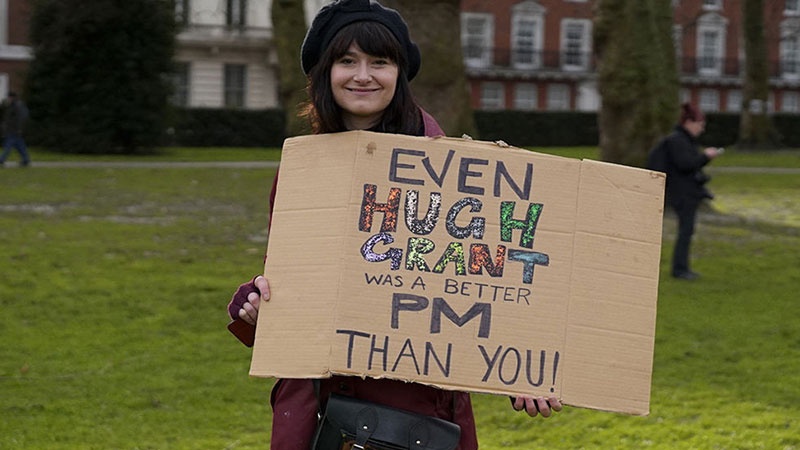 EVEN
HUGH
GRANT
WAS A BETTER
PM
THAN YOU!